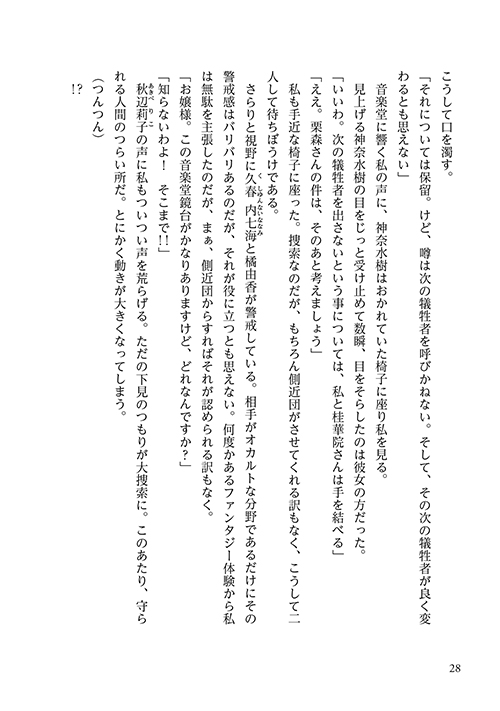 こうして口を濁す。
「それについては保留。けど、噂は次の犠牲者を呼びかねない。そして、その次の犠牲者が良く変
わるとも思えない」
音楽堂に響く私の声に、神奈水樹はおかれていた椅子に座り私を見る。
見上げる神奈水樹の目をじっと受け止めて数瞬、目をそらしたのは彼女の方だった。
「いいわ。次の犠牲者を出さないという事については、私と桂華院さんは手を結べる」
「ええ。栗森さんの件は、そのあと考えましょう」
私も手近な椅子に座った。捜索なのだが、もちろん側近団がさせてくれる訳もなく、こうして二
人して待ちぼうけである。
さらりと視野に久春内七海と橘由香が警戒している。相手がオカルトな分野であるだけにその
くしゅんないななみ
警戒感はバリバリあるのだが、それが役に立つとも思えない。何度かあるファンタジー体験から私
は無駄を主張したのだが、まぁ、側近団からすればそれが認められる訳もなく。
「お嬢様。この音楽堂鏡台がかなりありますけど、どれなんですか？」
「知らないわよ！　そこまで!!」
秋辺莉子の声に私もついつい声を荒らげる。ただの下見のつもりが大捜索に。このあたり、守ら
あきべりこ
れる人間のつらい所だ。とにかく動きが大きくなってしまう。
（つんつん）
!?
28